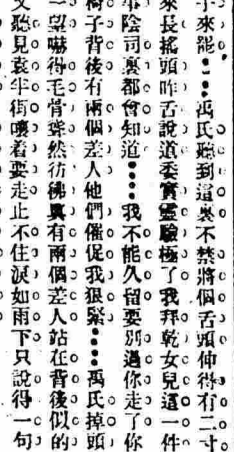 子來罷●●●禹氏聽到這裏不禁將個舌頭伸得有二寸
來長搖頭咋舌說道委實靈驗極了我拜乾女兒這一件
事陰司裏都會知道●●●●我不能久留要別過你走了你
椅子背後有兩個差人他們催促我狠緊●●●●禹氏掉頭
一望嚇得毛骨聳然彷彿真有兩個差人站在背後似的
又聽見袁半街嚷着要走止不住淚如雨下只說得一句